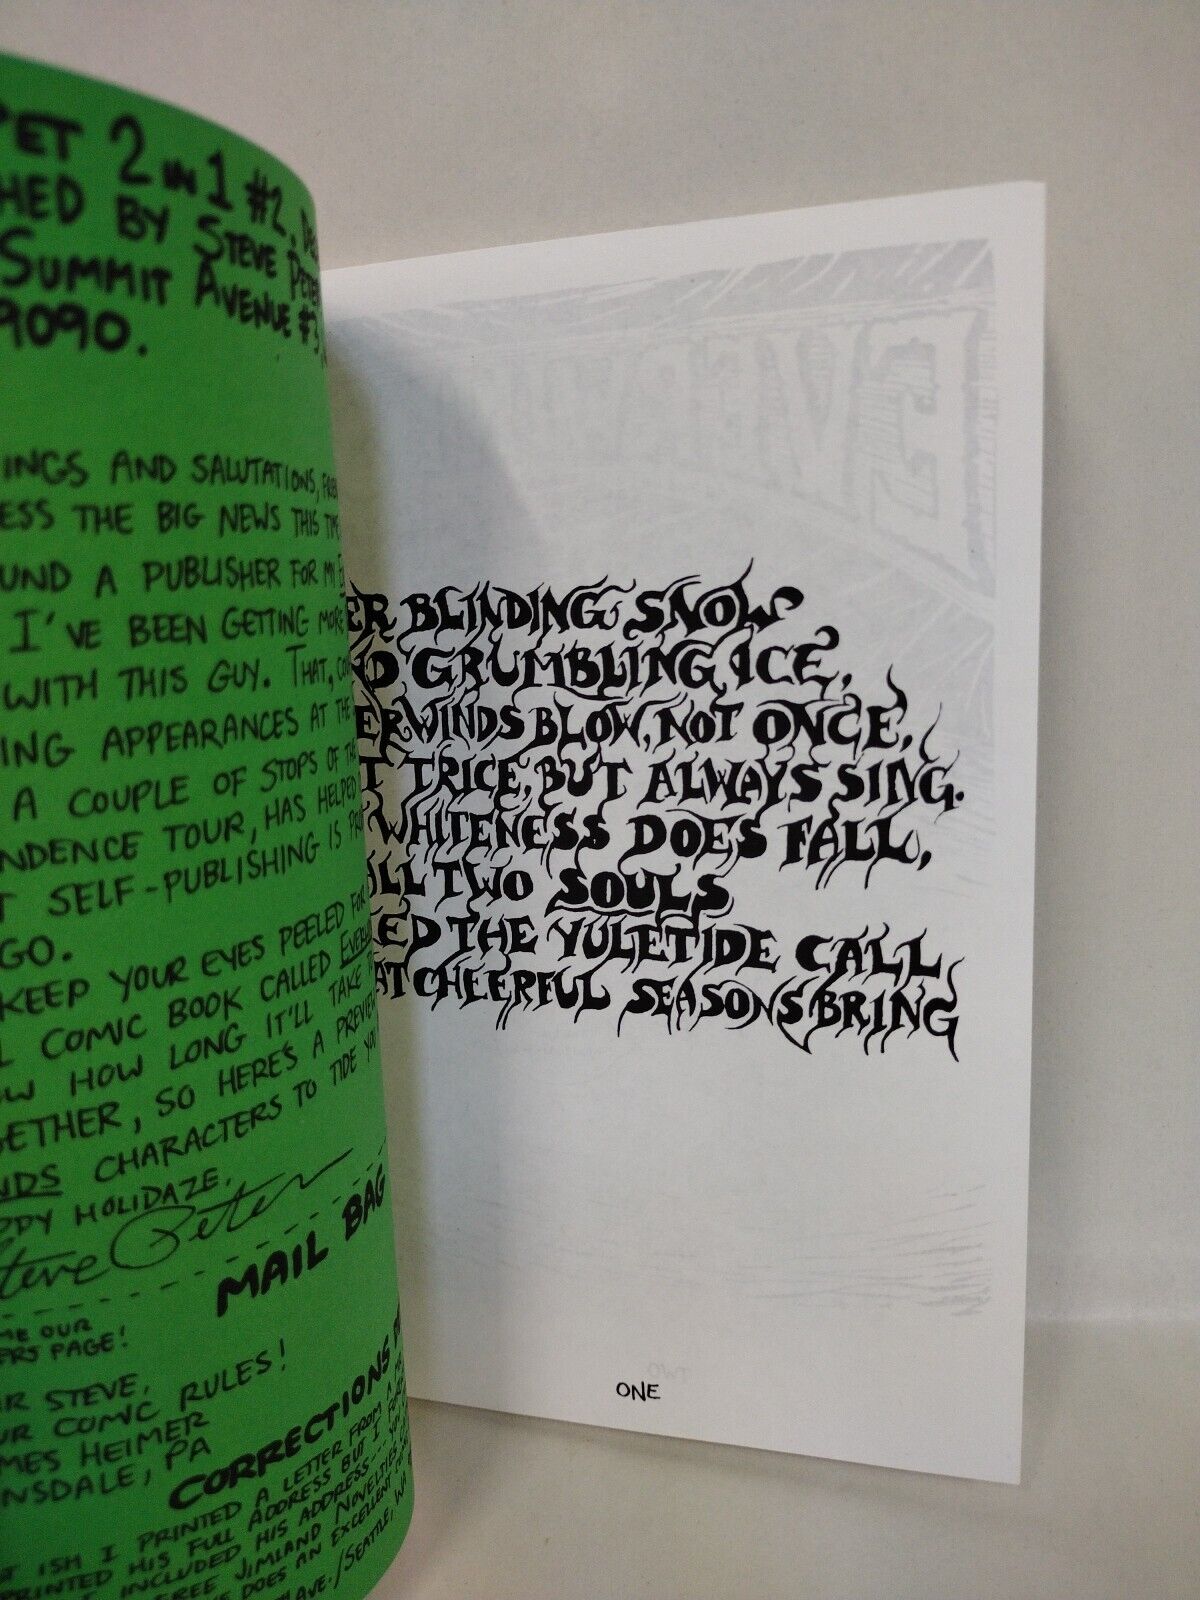 2 IN 1 #2.
BY STEVE
SUMMIT AVENUE #3
9090.
AND SALUTATIONS,
THE BIG NEWS THIS
A PUBLISHER FOR MY
I'VE BEEN GETTING MORE
WITH THIS GUY. THAT,
APPEARANCES AT THE
A COUPLE OF STOPS OF THE
TOUR, HAS HELPED
SELF-PUBLISHING IS
GO.
KEEP YOUR EYES PEELED FOR
COMIC BOOK CALLED
HOW LONG IT'LL TAKE
SO HERE'S A PREVIEW
CHARACTERS TO TIDE
HOLIDAZE.
Steve Peters
MAIL BAG
OUR
PAGE!
STEVE,
COMIC RULES!
HEIMER
PA
CORRECTIONS
ISH I PRINTED A LETTER FROM A
PRINTED HIS FULL ADDRESS BUT I
INCLUDED HIS ADDRESS
FREE JIMLAND NOVELTIES
DOES AN EXCELLENT
AVE./SEATTLE, WA
BLINDING SNOW
GRUMBLING ICE,
WINDS BLOW, NOT ONCE,
TRICE, BUT ALWAYS SING.
WHITENESS DOES FALL,
TWO SOULS
THE YULETIDE CALL
CHEERFUL SEASONS BRING
ONE